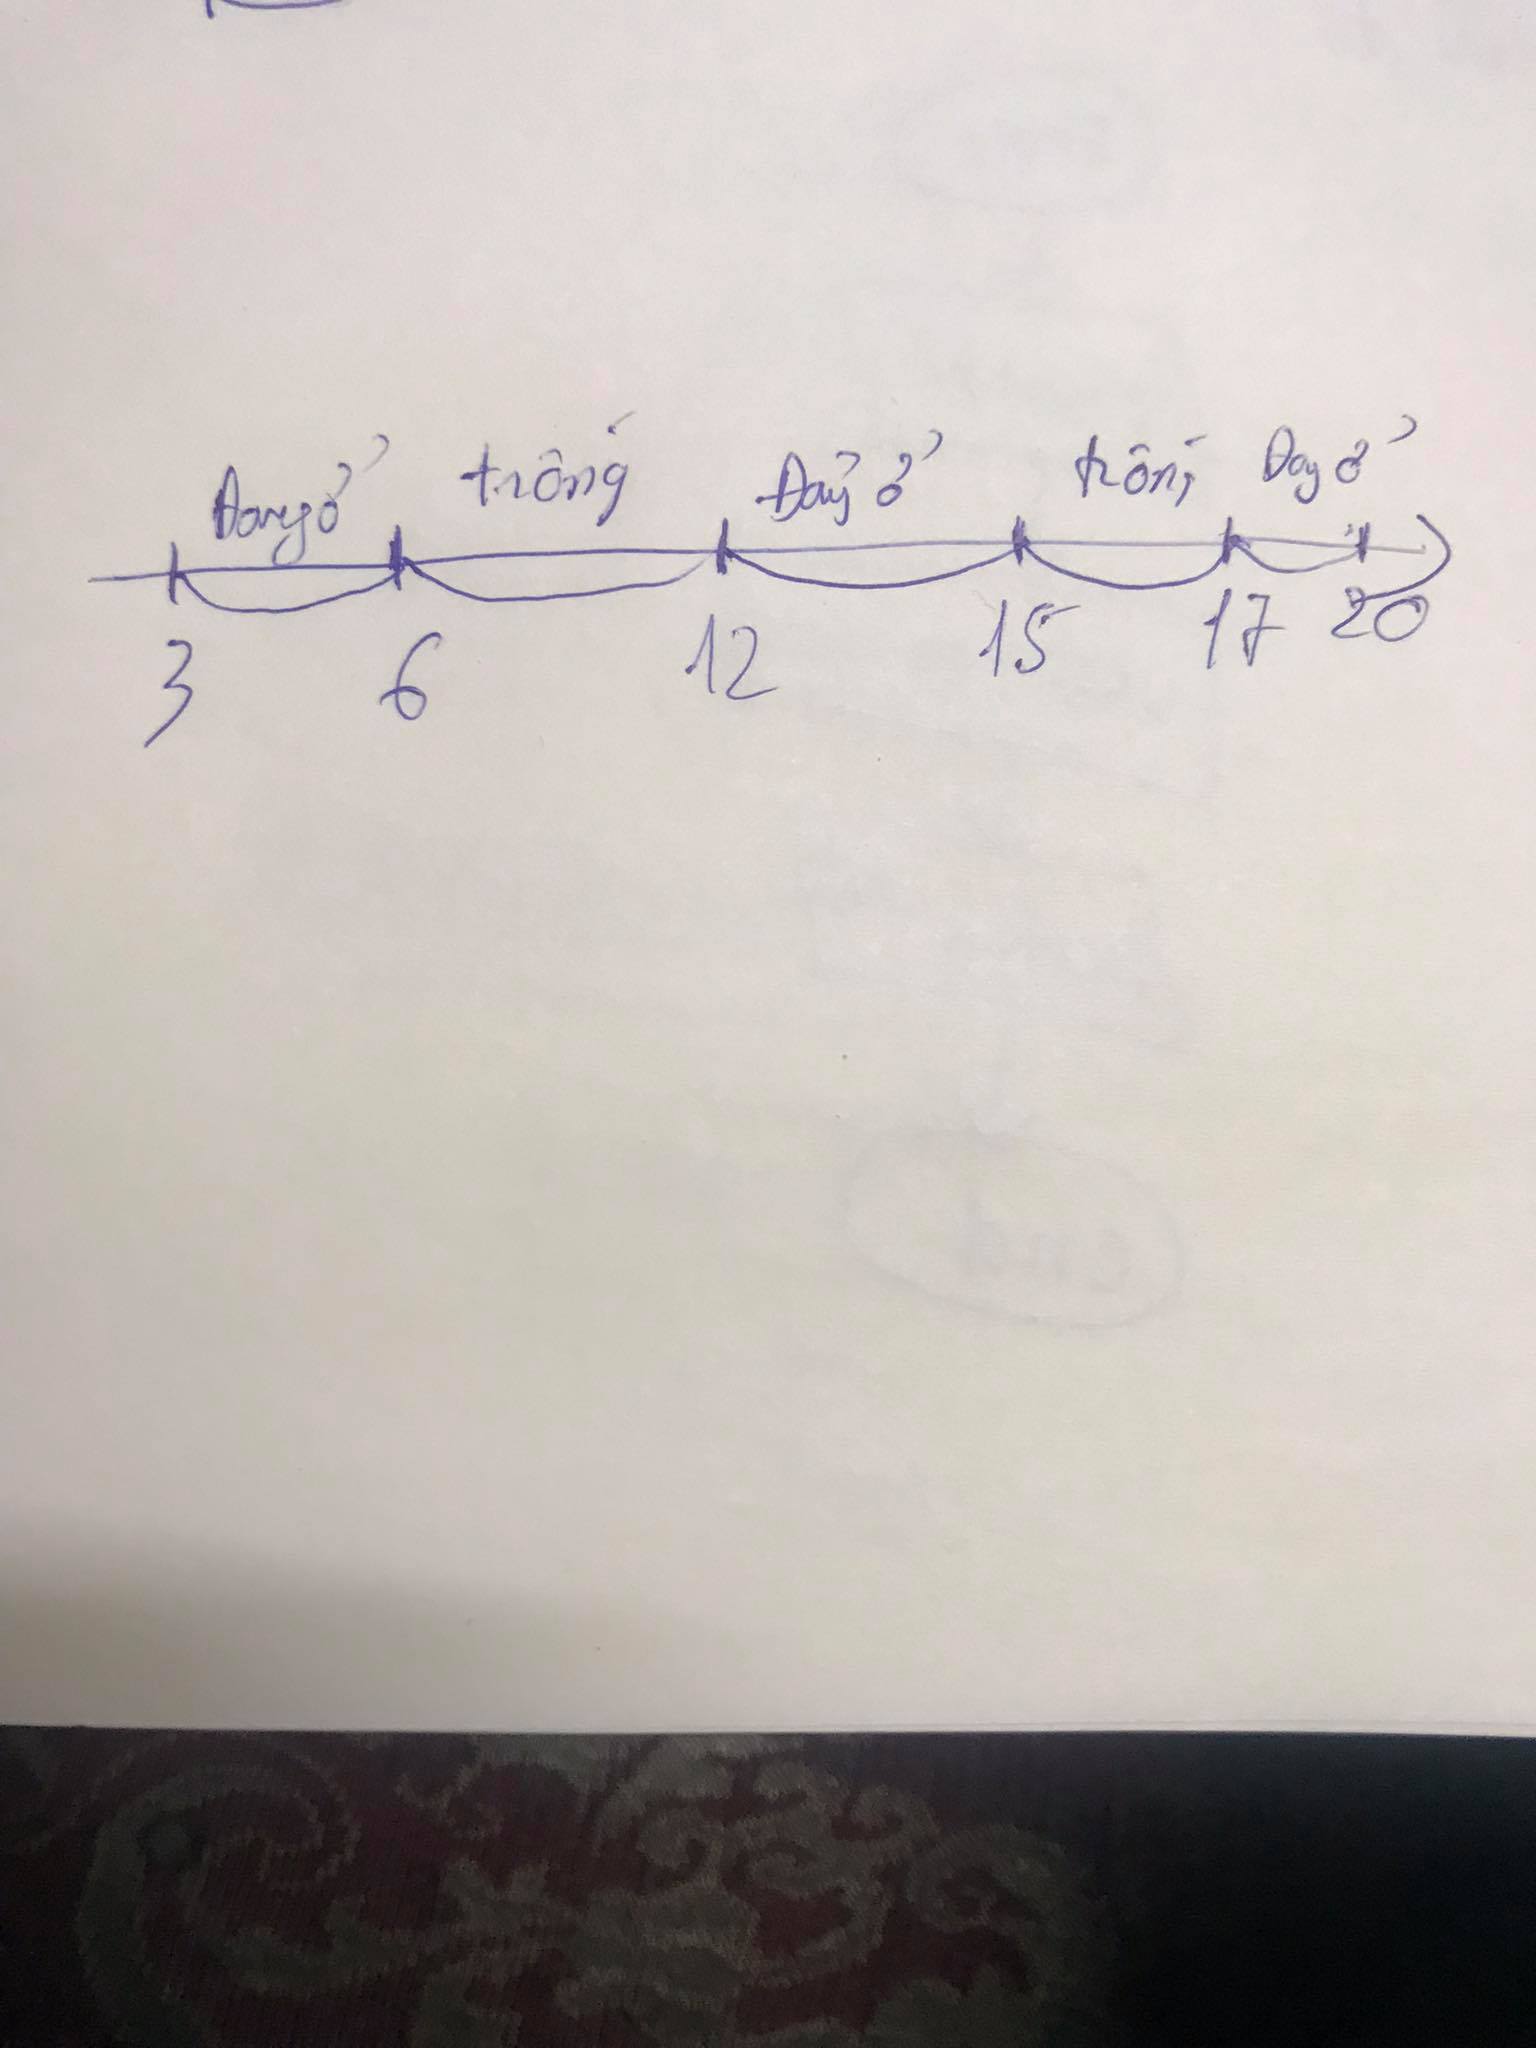 Đang ở trống Đang ở trống Đang ở
3 6 12 15 17 20
end